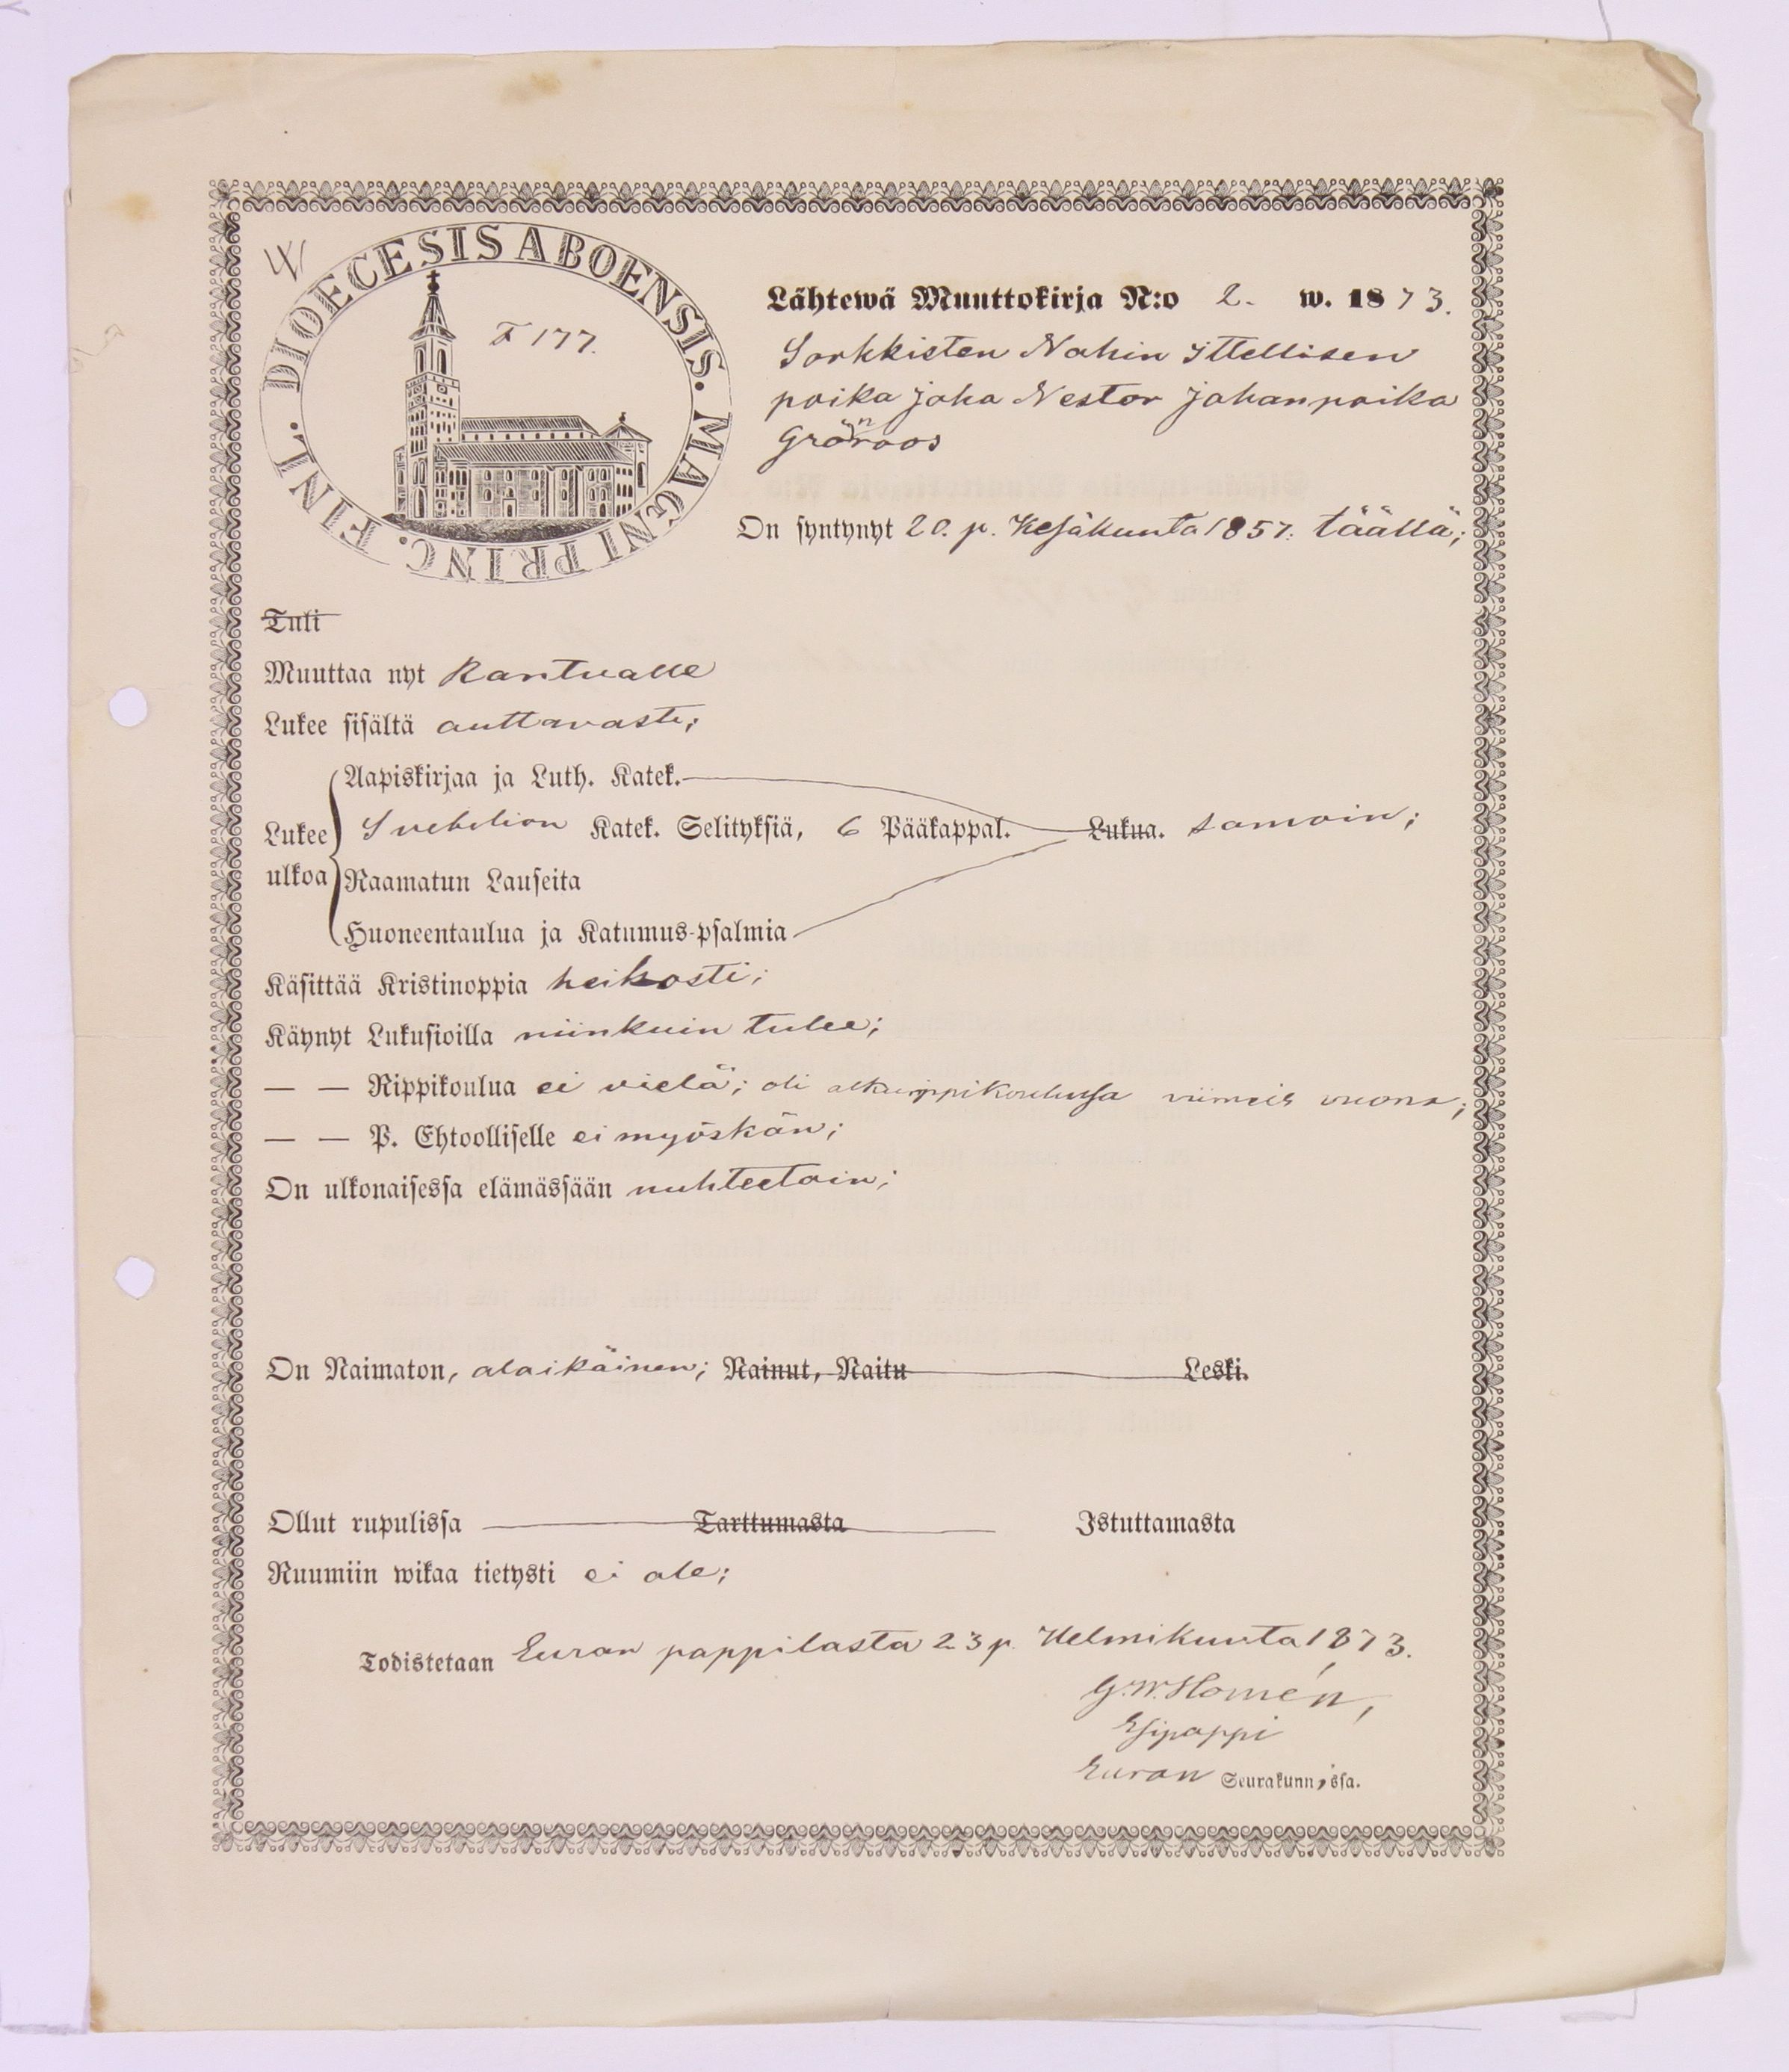 DIOECESIS ABOENSIS. MAGNI PRINC. FINL.
F 177.
Lähtewä Muuttokirja N:o 2. w. 1873.
Sorkkisten Nahin Ittellisen
poika Joha Nestor Johanpoika
Grönroos
On syntynyt 20. p. Kesäkuuta 1857. täällä;
Tuli
Muuttaa nyt Kantvalle
Lukee sisältä auttavasti;
Aapiskirjaa ja Luth. Katek.
Lukee ulkoa Svebelion Katek. Selityksiä, 6 Pääkappal. Lukua. samoin;
Raamatun Lauseita
Huoneentaulua ja Katumus-psalmia
Käsittää Kristinoppia heikosti;
Käynyt Lukusioilla niinkuin tulee;
— — Rippikoulua ei vielä; oli alkurippikoulussa viimeis vuona;
— — P. Ehtoolliselle ei myöskän;
On ulkonaisessa elämässään nuhteetoin;
On Naimaton, alaikäinen; Nainut, Naitu Leski.
Ollut rupulissa Tarttumasta Istuttamasta
Ruumiin wikaa tietysti ei ole;
Todistetaan Euran pappilasta 23 p. Helmikuuta 1873.
G. W. Homén,
Esipappi
Euran Seurakunn,ssa.